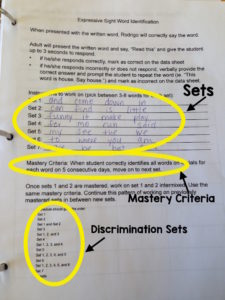 Expressive Sight Word Identification
When presented with the written word, Rodrigo will correctly say the word.
Adult will present the written word and say, "Read this" and give the student
up to 3 seconds to respond.
if he/she responds correctly, mark as correct on the data sheet
if he/she responds incorrectly or does not respond, verbally provide the
correct answer and prompt the student to repeat the word (ie. "This
word is house. Say house".) and mark as incorrect on the data sheet.
Sets
Set 1: and come down in
Set 2: find little
Set 3: funny it make play
Set 4: run said
Set 5: my see the we
Set 6: to where you am
Set 7:
Mastery Criteria: When student correctly identifies all words on trials for
each word on 5 consecutive days, move on to next set.
Mastery Criteria
Once sets 1 and 2 are mastered, work on set 1 and 2 intermixed. Use the
same mastery criteria. Continue this pattern of working on previously
mastered sets in between new sets.
Discrimination Sets
Set 1
Set 2
Set 1 and Set 2
Set 3
Set 1, 2, and 3
Set 4
Set 1, 2, 3, and 4
Set 5
Set 1, 2, 3, 4, and 5
Set 6